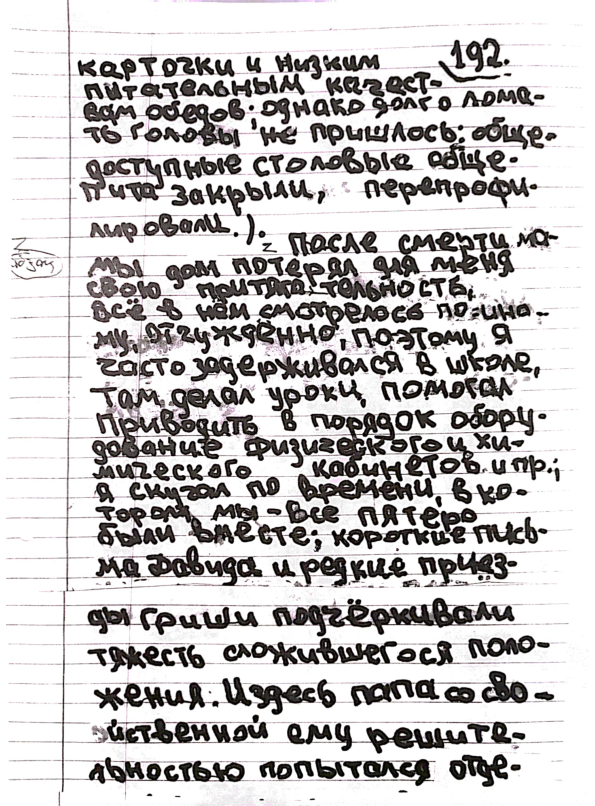 192.
карточки и низким
питательным качест-
вам обедов; однако долго лома-
ть головы не пришлось: обще-
доступные столовые обще-
пита закрыли, перепрофи-
лировали.).
Z После смерти ма-
мы дом потерял для меня
свою притягательность,
всё в нём смотрелось по-ино-
му, отчуждённо, поэтому я
часто задерживался в школе,
там делал уроки, помогал
приводить в порядок обору-
дование физического и хи-
мического кабинетов и пр.;
я скучал по времени, в ко-
тором мы-все пятеро
были вместе; короткие пись-
ма Давида и редкие приез-
ды Гриши подчёркивали
тяжесть сложившегося поло-
жения. И здесь папа со сво-
йственной ему решите-
льностью попытался отде-